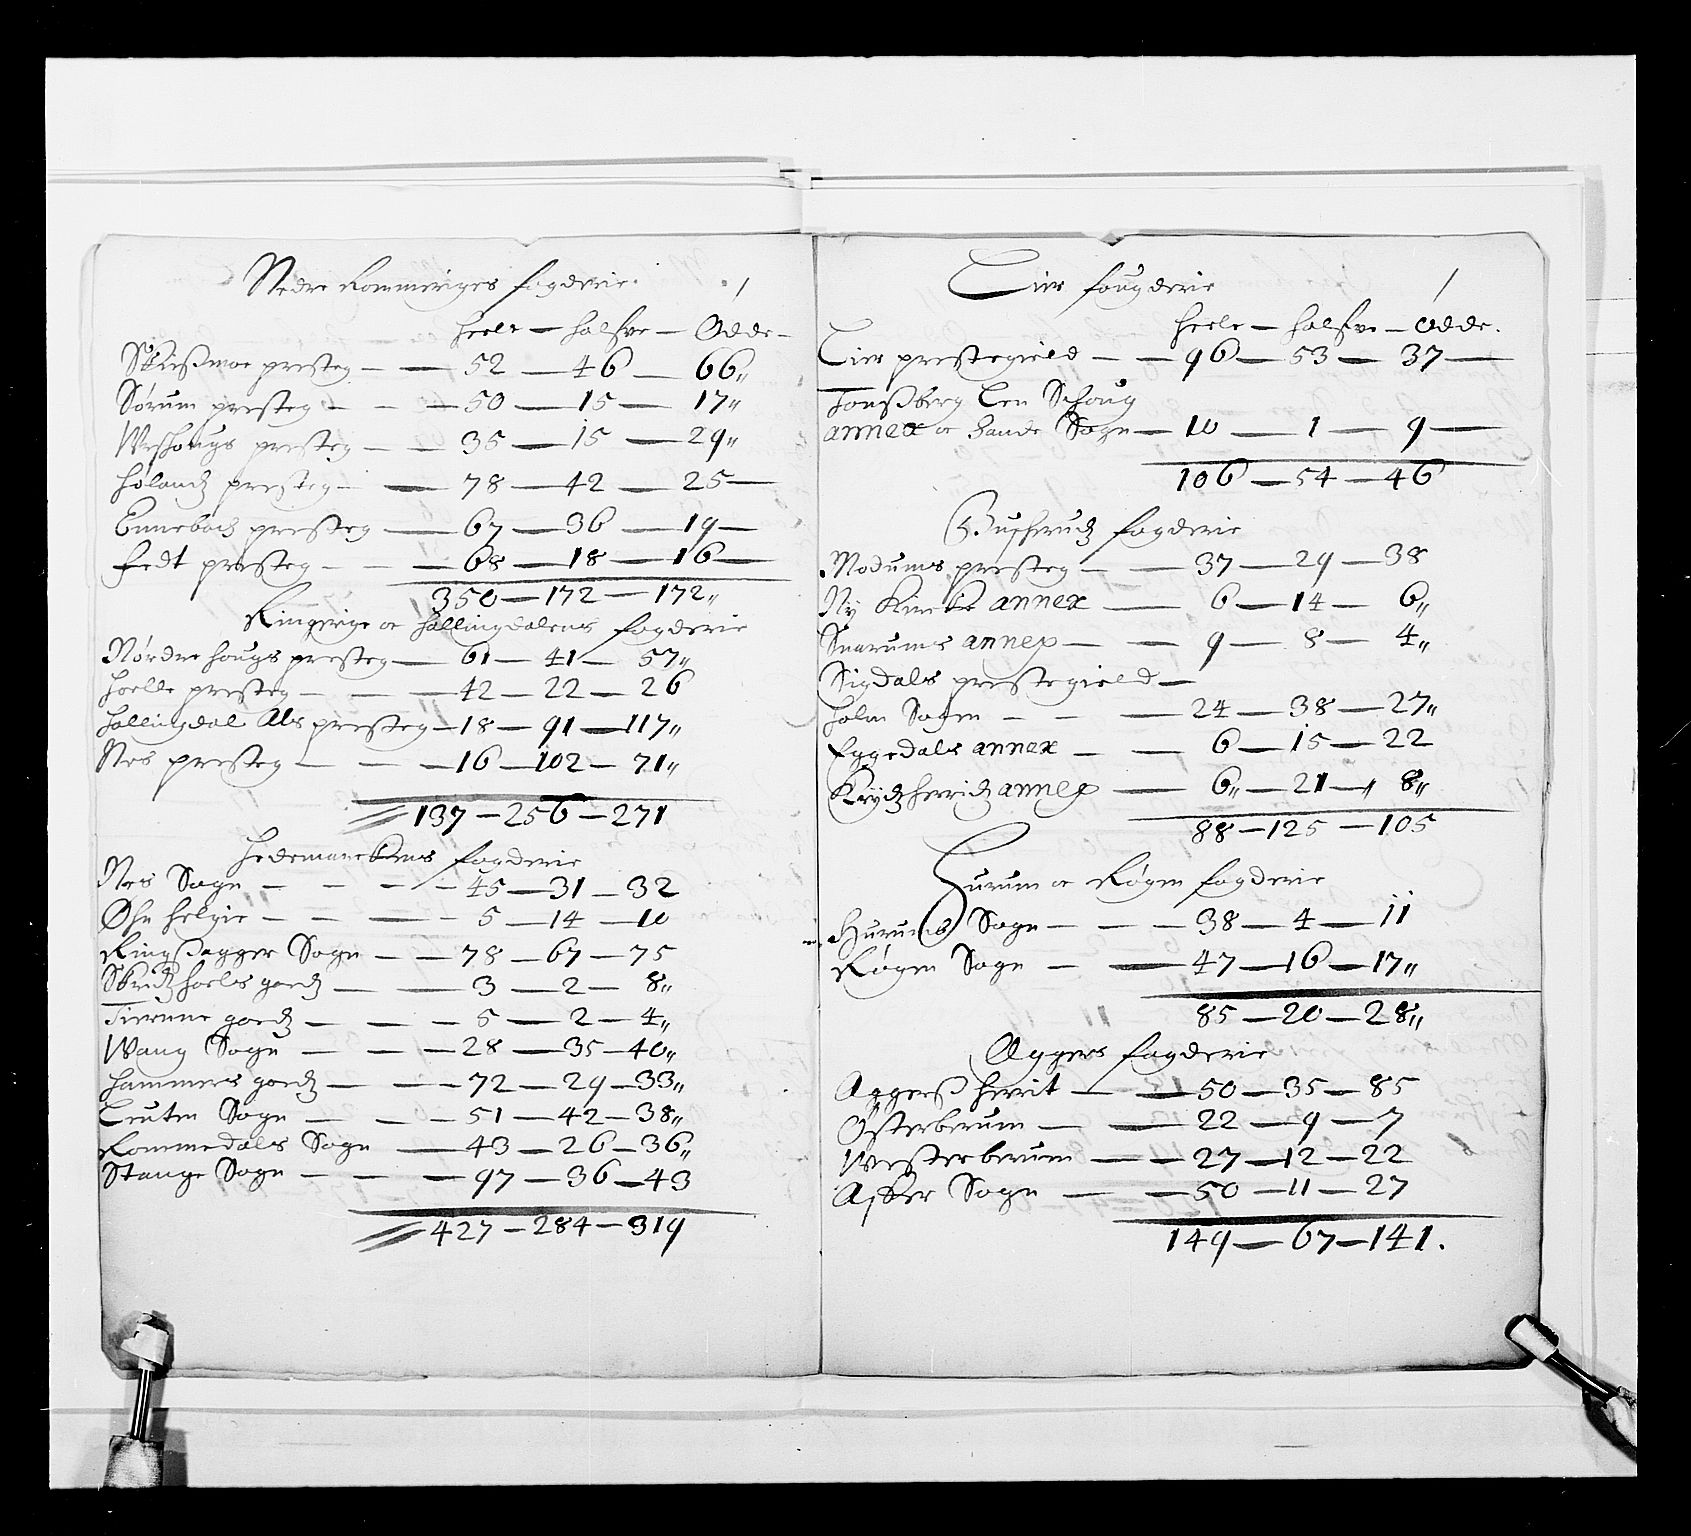 Nedre Rommeriges fogderie.
heele — halfve — Ødde —
Skiesmoe presteg — — 52 — 46 — 66„
Sørum presteg — — — 50 — 15 — 17„
presteg — — 35 — 15 — 29„
Høland presteg — — 78 — 42 — 25 —
Ennebach presteg — 67 — 36 — 19 —
Fedt presteg — — — 68 — 18 — 16 —
350 — 172 — 172„
Ringerige oc Hallingdalens fogderie
Nørdrehougs presteg — 61 — 41 — 57„
Hoelle presteg — — — 42 — 22 — 26
Hallingdal Als presteg — 18 — 91 — 117„
Nes presteg — — — 16 — 102 — 71„
137 — 256 — 271
Hedemarckens fogderie
Nes Sogn — — — — 45 — 31 — 32
Øhn Helgie — — — — 5 — 14 — 10
Ringsagger Sogn — — 78 — 67 — 75
gield — — 3 — 2 — 8„
gield — — — 5 — 2 — 4„
Wang Sogn — — — 28 — 35 — 40„
Hammers gield — — — 72 — 29 — 33„
Leuten Sogn — — — 51 — 42 — 38„
Rommedals Sogn — — 43 — 26 — 36„
Stange Sogn — — — 97 — 36 — 43
427 — 284 — 319
Lier fougderie
heele — halfve — Ødde.
Lier prestegield — — 96 — 53 — 37 —
Tonsberg Len Schoug
annex oc Sande Sogn — 10 — 1 — 9 —
106 — 54 — 46
Buscherudz fogderie
Modums presteg — — 37 — 29 — 38
Ny Kircke annex — 6 — 14 — 6„
Snarums annex — — 9 — 8 — 4„
Sigdals prestegield —
Holm Sogen — — — 24 — 38 — 27„
Eggedals annex — — 6 — 15 — 22
Krydzherridz annex — 6„ — 21 — „ 8„
88 — 125 — 105
Hurum oc Røgen fogderie
Hurums Sogn — — — 38 — 4 — 11
Røgen Sogn — — 47 — 16 — 17„
85 — 20 — 28„
Aggers fogderie
Aggers herrit — — 50 — 35 — 85
Østerberum — — 22 — 9 — 7
Westerberum — — 27 — 12 — 22
Asker Sogn — — 50 — 11 — 27
149 — 67 — 141.